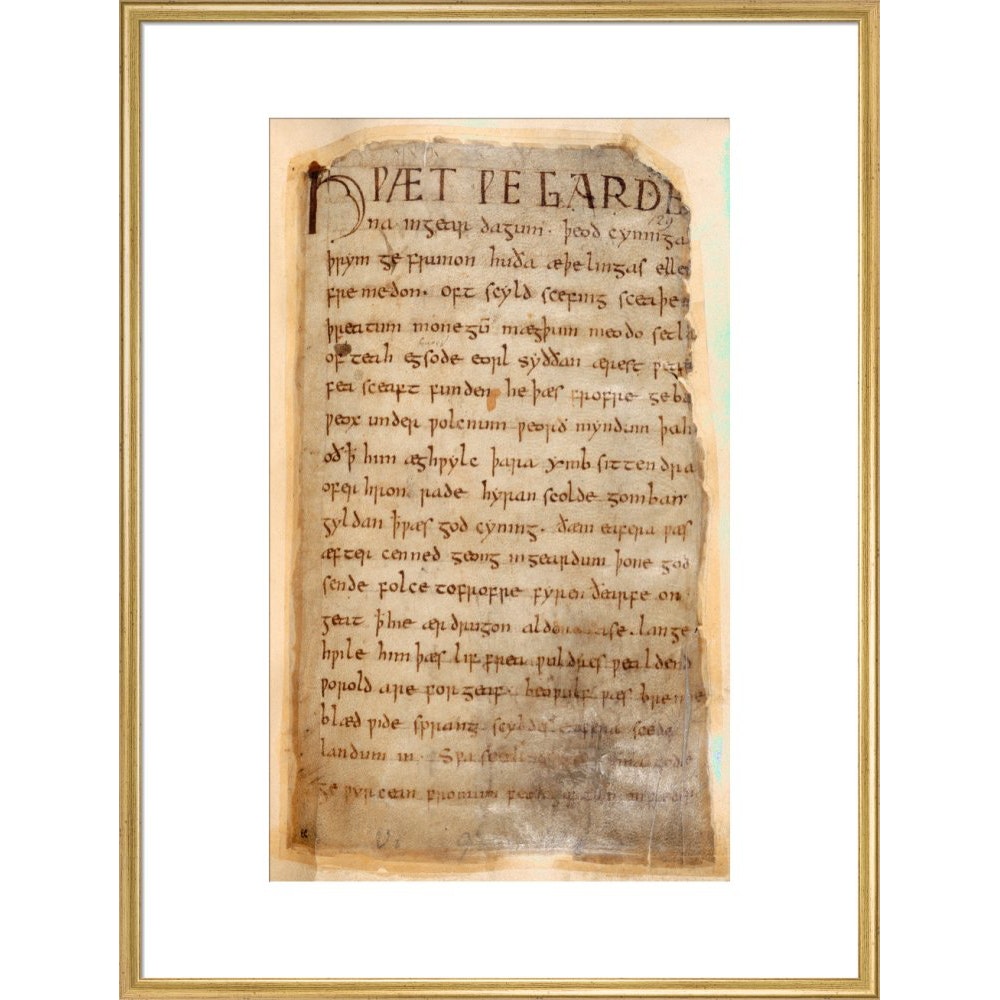 HǷÆT ǷE GARDE
129
na ingear dagum. þeod cyninga
þrym ge frunon huða æþelingas elle
fremedon. oft scyld scefing sceaþe
þreatum monegū mægþum meodo setla
of teah egsode eorl syððan ærest
fea sceaft funden he þæs frofre geba
ƿeox under ƿolcnum ƿeorð myndum þah
oð ꝥ him æghƿylc þara ymb sittendra
ofer hron rade hyran scolde gomban
gyldan ꝥ ƿæs god cyning. ðæm eafera ƿæs
æfter cenned geong in geardum þone god
sende folce tofrofre fyren ðearfe on
geat ꝥ hie ær drugon aldor ase. lange
hƿile him þæs lif frea ƿuldres ƿealdend
ƿorold are for geaf. beoƿulf ƿæs breme
blæd ƿide sprang scyldes eafera scede
landum in. Sƿa guma gode
ge ƿyrcean fromum